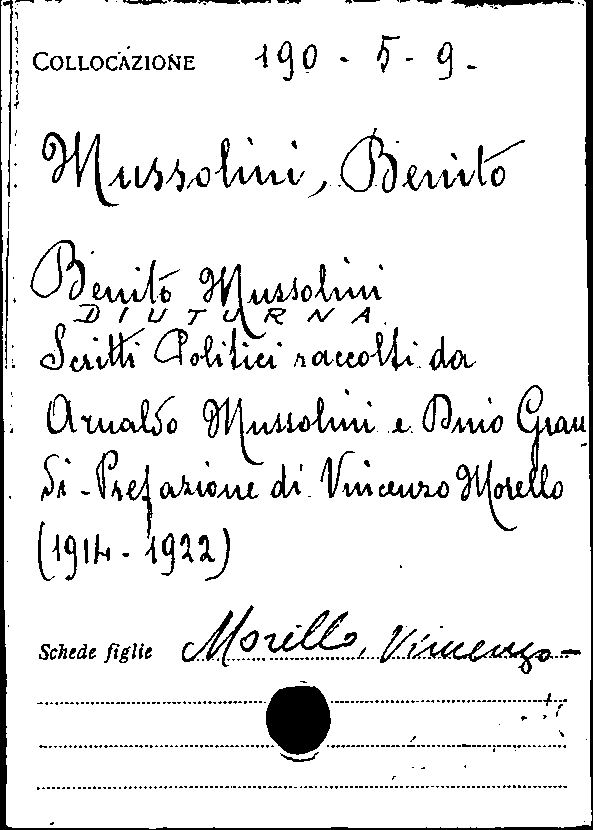 COLLOCAZIONE 190 - 5 - 9 -
Mussolini, Benito
Benito Mussolini
DIUTURNA
Scritti Politici raccolti da
Arnaldo Mussolini e Dino Gran
di - Prefazione di Vincenzo Morello
(1914 - 1922)
Schede figlie Morello, Vincenzo -